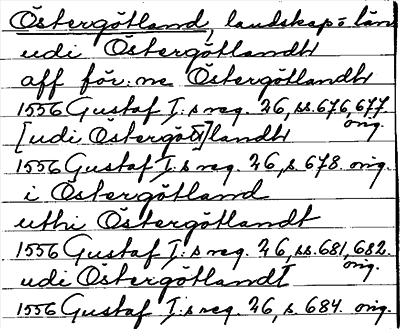 Östergötland, landskap o län
udi Östergötlandh
aff för:ne Östergötlandh
1556 Gustaf I:s reg. 26, ss. 676, 677. orig.
[udi Östergöt]landh
1556 Gustaf I:s reg. 26, s. 678. orig.
i Östergötland
uthi Östergötlandt
1556 Gustaf I:s reg. 26, ss. 681, 682. orig.
udi Östergötlandt
1556 Gustaf I:s reg. 26, s. 684. orig.